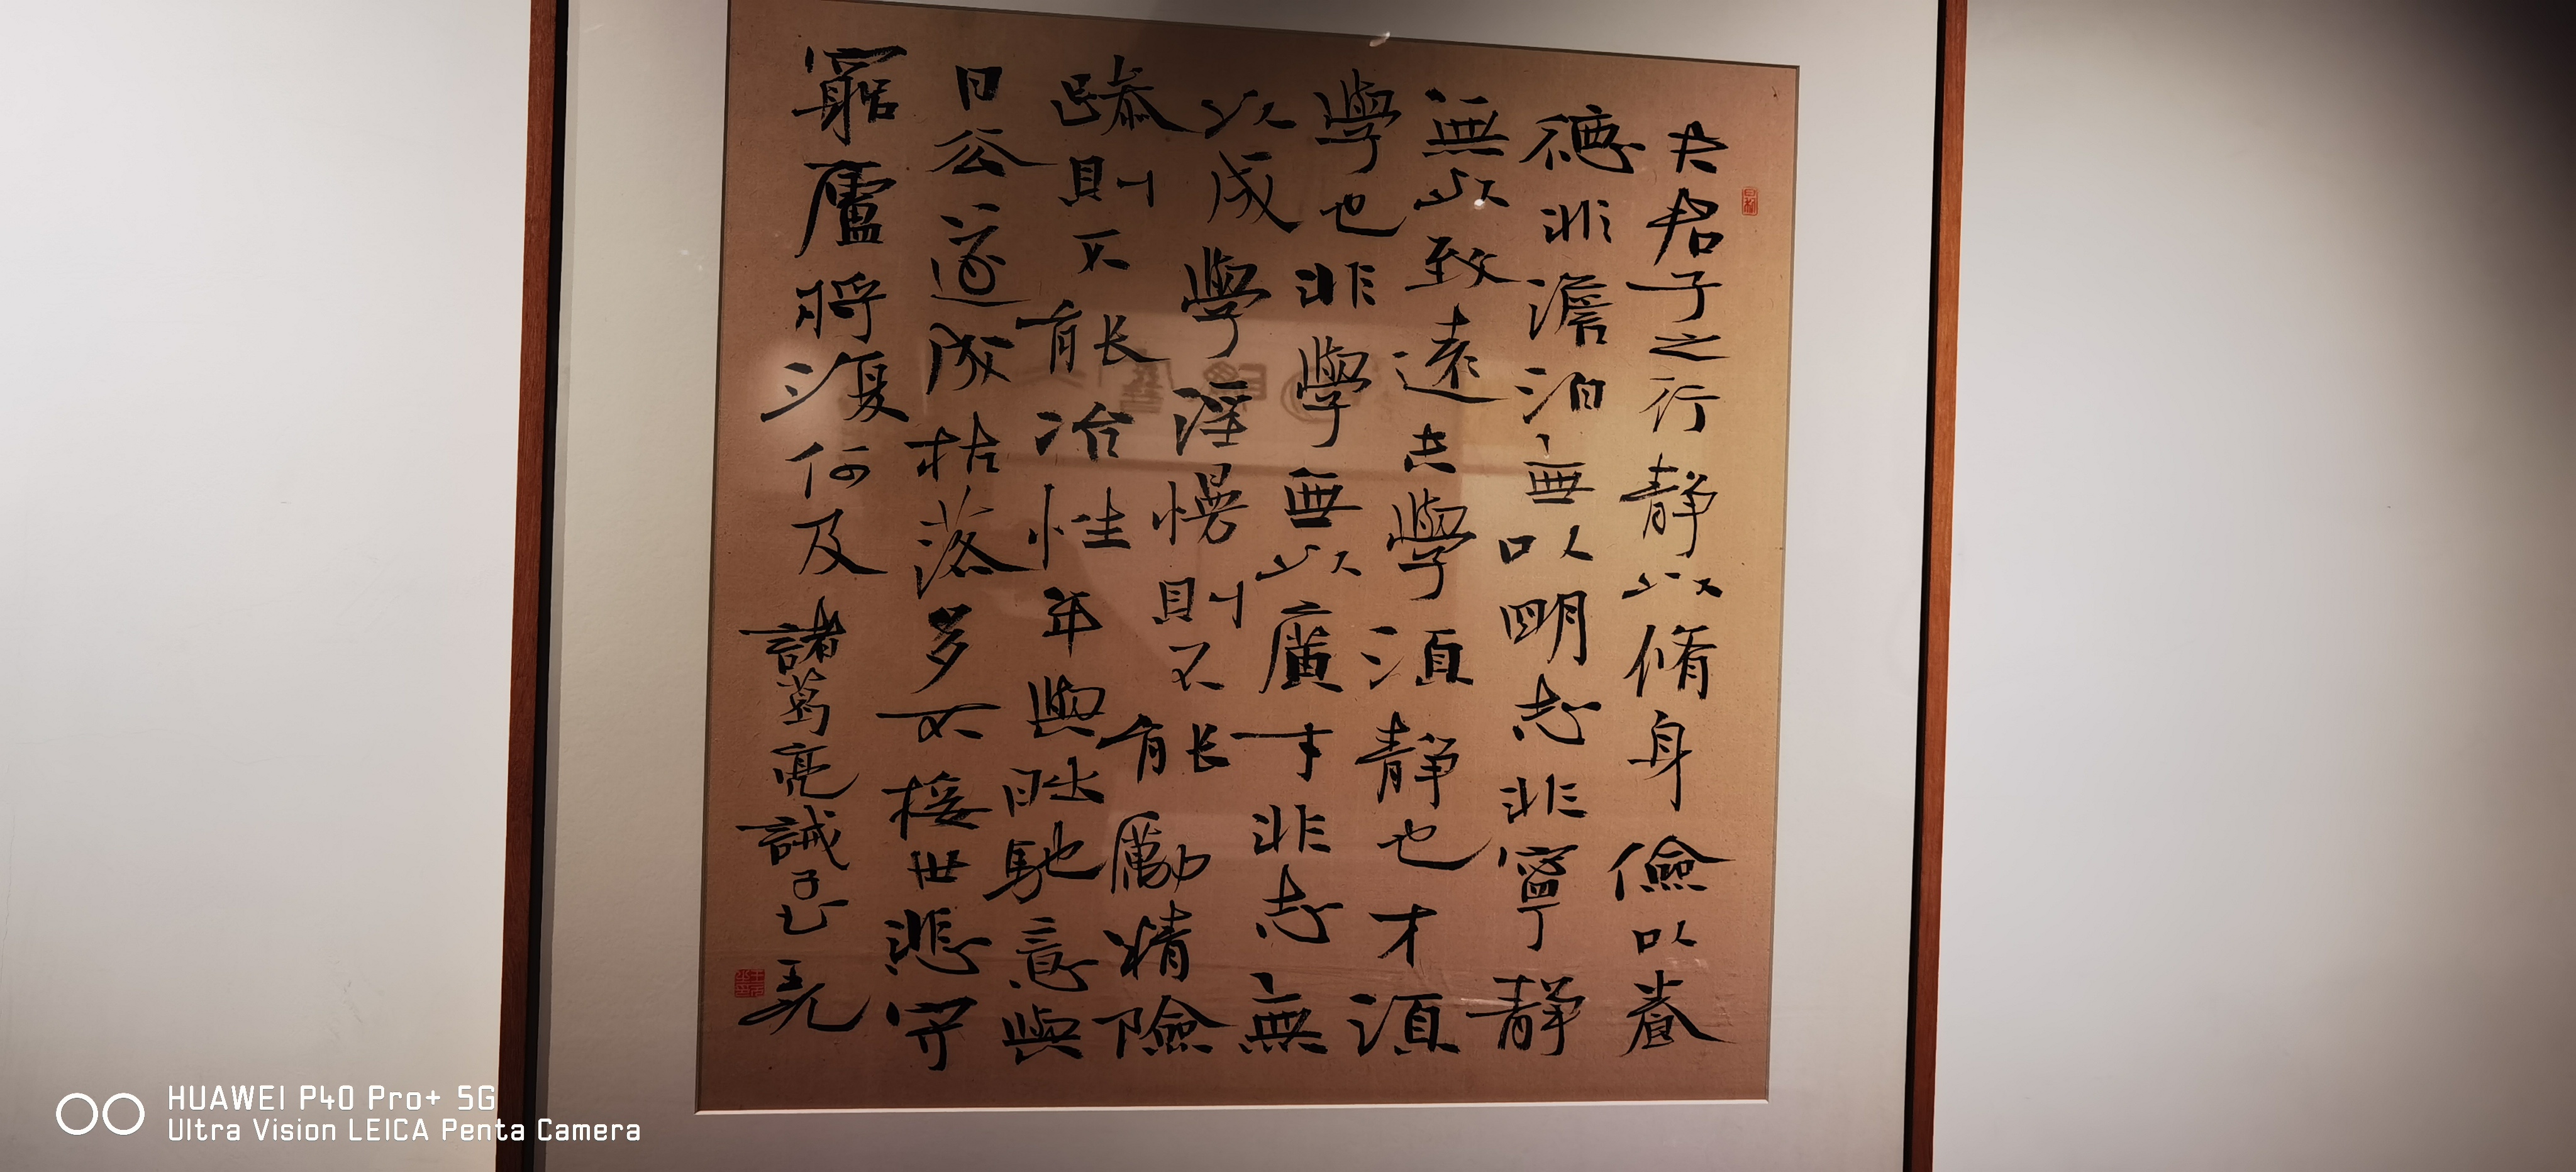 夫君子之行静以脩身儉以養
德非澹泊無以明志非寧静
無以致遠夫學須静也才須
學也非學無以廣才非志無
以成學淫慢則不能勵精險
躁則不能冶性年與時馳意與
日去遂成枯落多不接世悲守
窮廬將復何及
諸葛亮誡子書 王
HUAWEI P40 Pro+ 5G
Ultra Vision LEICA Penta Camera